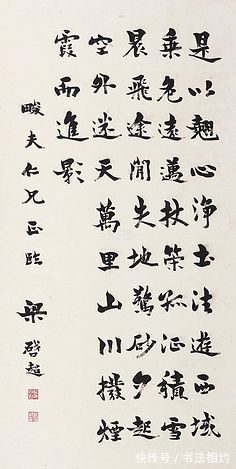 是以翹心净土法遊西域
乘危遠邁杖策孤征積雪
晨飛途閒失地驚砂夕起
空外迷天萬里山川撥煙
霞而進影
畯夫仁兄正臨
梁啓超
快传号/书法相约